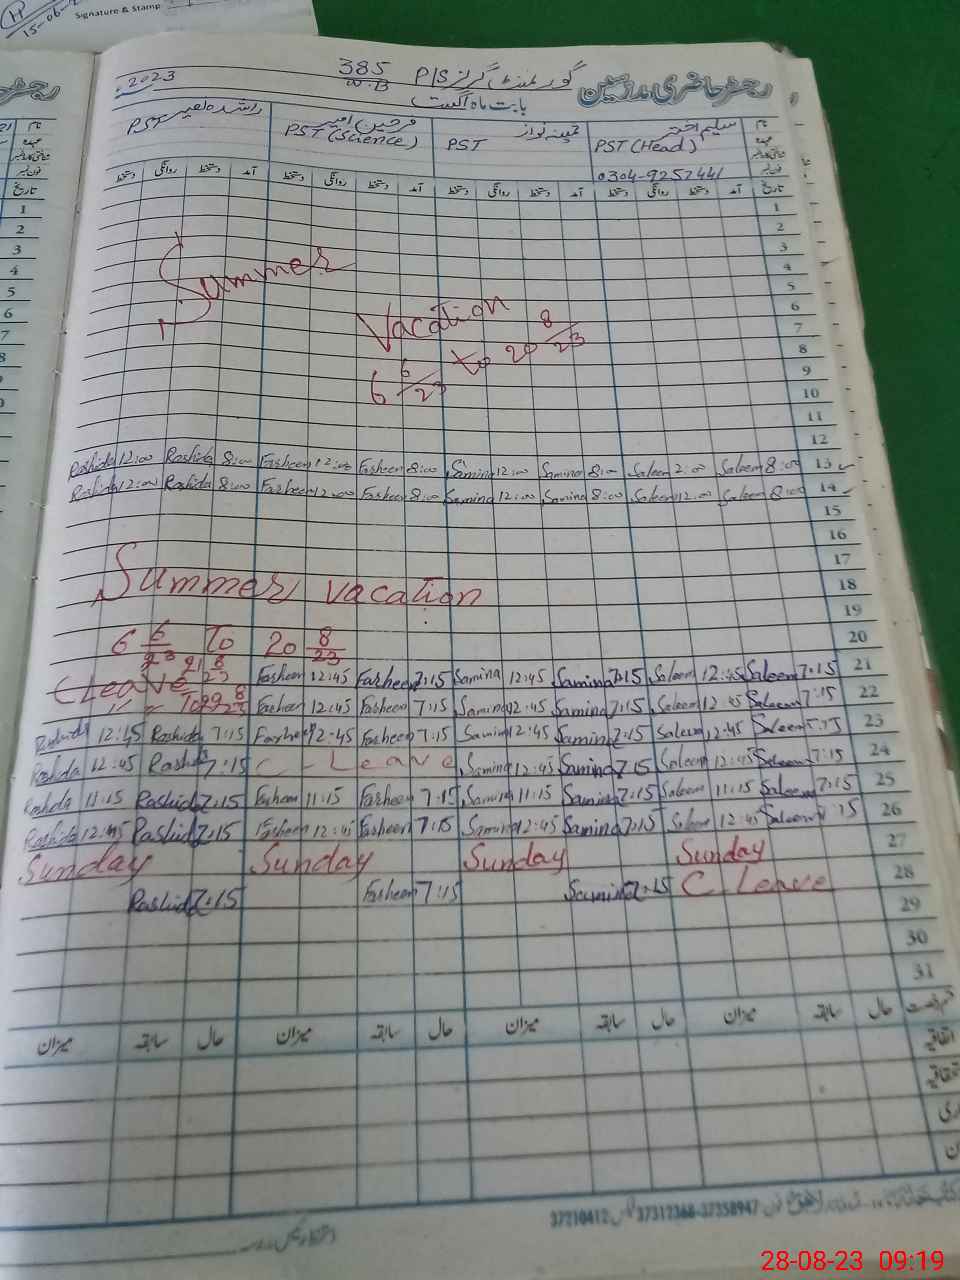 Signature & Stamp
15-06-
رجسٹر حاضری مدرسین گورنمنٹ گرلز P/S 385 W.B 2023
بابت ماہ اگست
نام سلیم اختر ثمینہ نواز فرحین امیر راشدہ نصیر
عہدہ PST (Head) PST PST (Science) PST
شناختی کارڈ نمبر
فون نمبر 0304-9257441
تاریخ آمد دستخط روانگی دستخط آمد دستخط روانگی دستخط آمد دستخط روانگی دستخط آمد دستخط روانگی دستخط
1
2
3
Summer 4
5
Vacation 6
7
6 6/23 to 20 8/23 8
9
10
11
12
Rashida 12:00 Rashida 8:00 Farheen 12:00 Farheen 8:00 Samina 12:00 Samina 8:00 Saleem 2:00 Saleem 8:00 13
Rashida 12:00 Rashida 8:00 Farheen 12:00 Farheen 8:00 Samina 12:00 Samina 8:00 Saleem 12:00 Saleem 8:00 14
15
16
17
Summer vacation 18
19
6 6/23 To 20 8/23 20
Leave 21 8/23 Farheen 12:45 Farheen 7:15 Samina 12:45 Samina 7:15 Saleem 12:45 Saleem 7:15 21
To 22 8/23 Farheen 12:45 Farheen 7:15 Samina 12:45 Samina 7:15 Saleem 12:45 Saleem 7:15 22
Rashida 12:45 Rashida 7:15 Farheen 12:45 Farheen 7:15 Samina 12:45 Samina 7:15 Saleem 12:45 Saleem 7:15 23
Rashida 12:45 Rashida 7:15 C - Leave Samina 12:45 Samina 7:15 Saleem 12:45 Saleem 7:15 24
Rashida 11:15 Rashida 7:15 Farheen 11:15 Farheen 7:15 Samina 11:15 Samina 7:15 Saleem 11:15 Saleem 7:15 25
Rashida 12:45 Rashida 7:15 Farheen 12:45 Farheen 7:15 Samina 12:45 Samina 7:15 Saleem 12:45 Saleem 7:15 26
Sunday Sunday Sunday Sunday 27
Rashida 7:15 Farheen 7:15 Samina 7:15 C. Leave 28
29
30
31
حال سابقہ میزان حال سابقہ میزان حال سابقہ میزان حال سابقہ میزان
اتفاقیہ
37210412 37312368-37358947
28-08-23 09:19